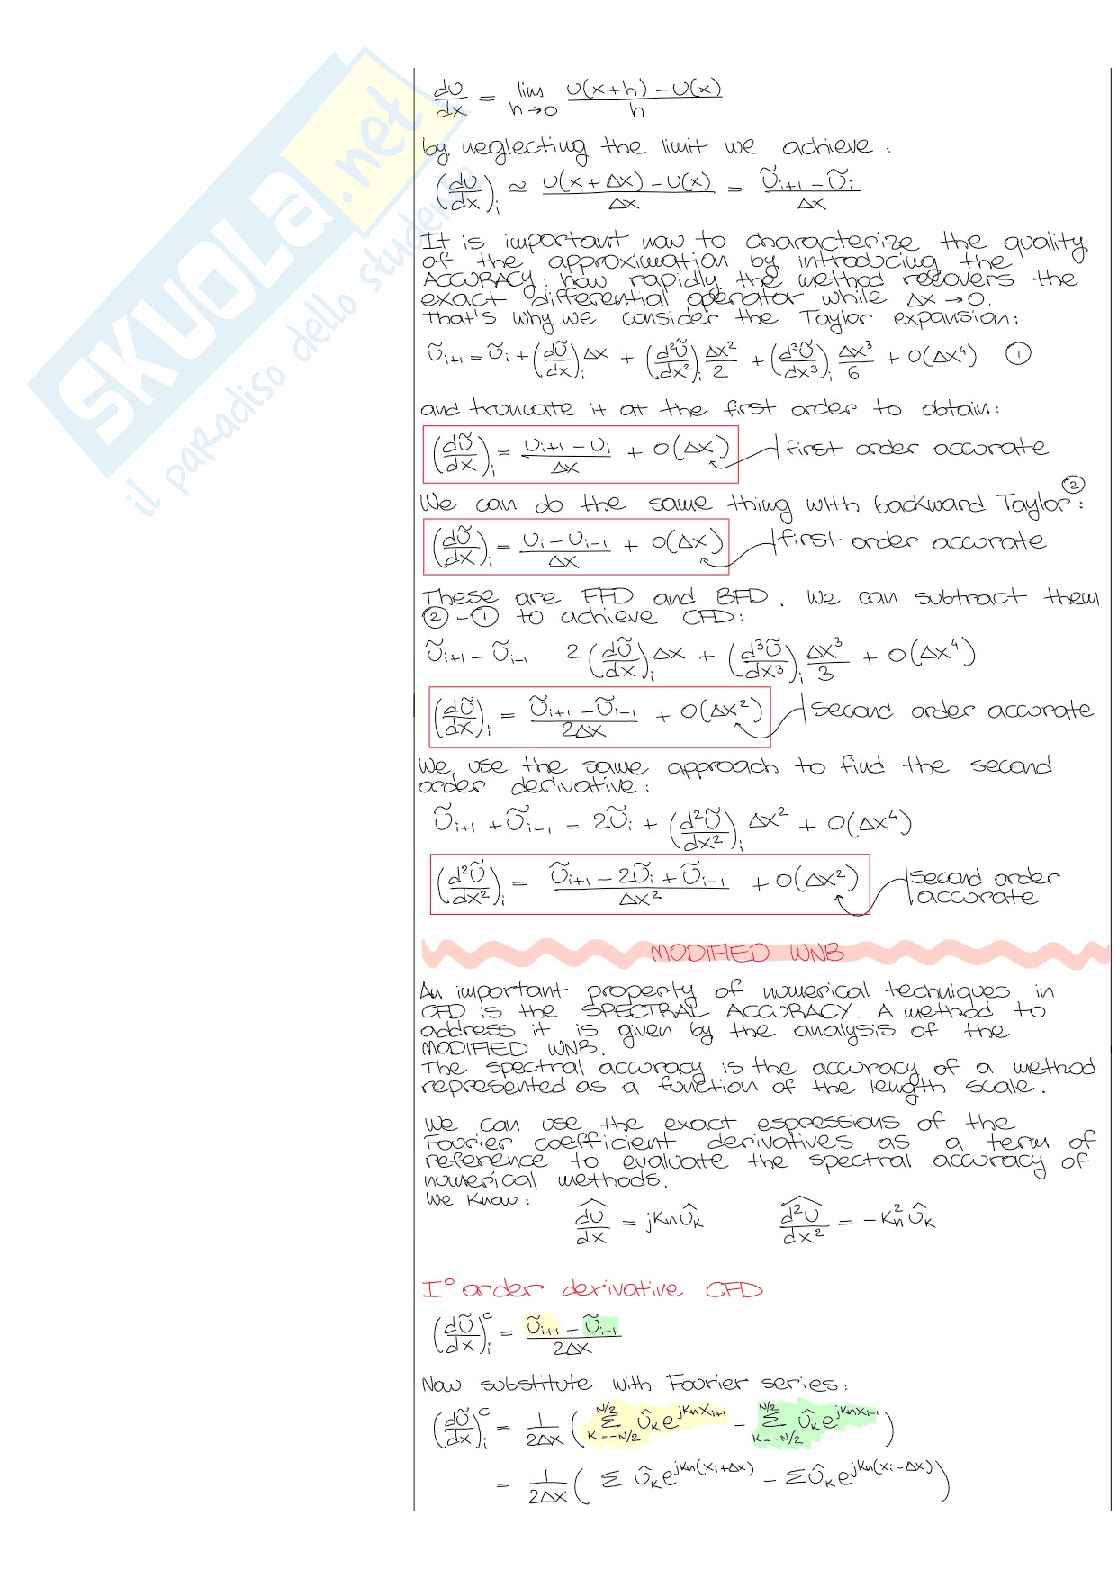 SKUOLA.net
il paradiso dello studente
dU/dx = lim h→0 (U(x+h) - U(x))/h
by neglecting the limit we achieve:
(dU/dx)i ≈ (U(x+Δx) - U(x))/Δx = (Ũi+1 - Ũi)/Δx
It is important now to characterize the quality
of the approximation by introducing the
ACCURACY: how rapidly the method recovers the
exact differential operator while Δx → 0.
That's why we consider the Taylor expansion:
Ũi+1 = Ũi + (dŨ/dx)i Δx + (d²Ũ/dx²)i Δx²/2 + (d³Ũ/dx³)i Δx³/6 + O(Δx⁴) ①
and truncate it at the first order to obtain:
(dŨ/dx)i = (Ui+1 - Ui)/Δx + O(Δx) first order accurate
We can do the same thing with backward Taylor ②:
(dŨ/dx)i = (Ui - Ui-1)/Δx + O(Δx) first order accurate
These are FFD and BFD. We can subtract them
② - ① to achieve CFD:
Ũi+1 - Ũi-1 2(dŨ/dx)i Δx + (d³Ũ/dx³)i Δx³/3 + O(Δx⁴)
(dŨ/dx)i = (Ũi+1 - Ũi-1)/2Δx + O(Δx²) second order accurate
We use the same approach to find the second
order derivative:
Ũi+1 + Ũi-1 - 2Ũi + (d²Ũ/dx²)i Δx² + O(Δx⁴)
(d²Ũ/dx²)i = (Ũi+1 - 2Ũi + Ũi-1)/Δx² + O(Δx²) second order
accurate
MODIFIED WNB
An important property of numerical techniques in
CFD is the SPECTRAL ACCURACY. A method to
address it is given by the analysis of the
MODIFIED WNB.
The spectral accuracy is the accuracy of a method
represented as a function of the length scale.
We can use the exact espressions of the
Fourier coefficient derivatives as a term of
reference to evaluate the spectral accuracy of
numerical methods.
We know:
dU/dx^ = jKnÛk d²U/dx²^ = -Kn²Ûk
I° order derivative CFD
(dŨ/dx)i^c = (Ũi+1 - Ũi-1)/2Δx
Now substitute with Fourier series:
(dŨ/dx)i^c = 1/2Δx (Σ K=-N/2 N/2 Ûk e^jKnXi+1 - Σ K=-N/2 N/2 Ûk e^jKnXi-1)
= 1/2Δx (Σ Ûk e^jKn(xi+Δx) - Σ Ûk e^jKn(xi-Δx))